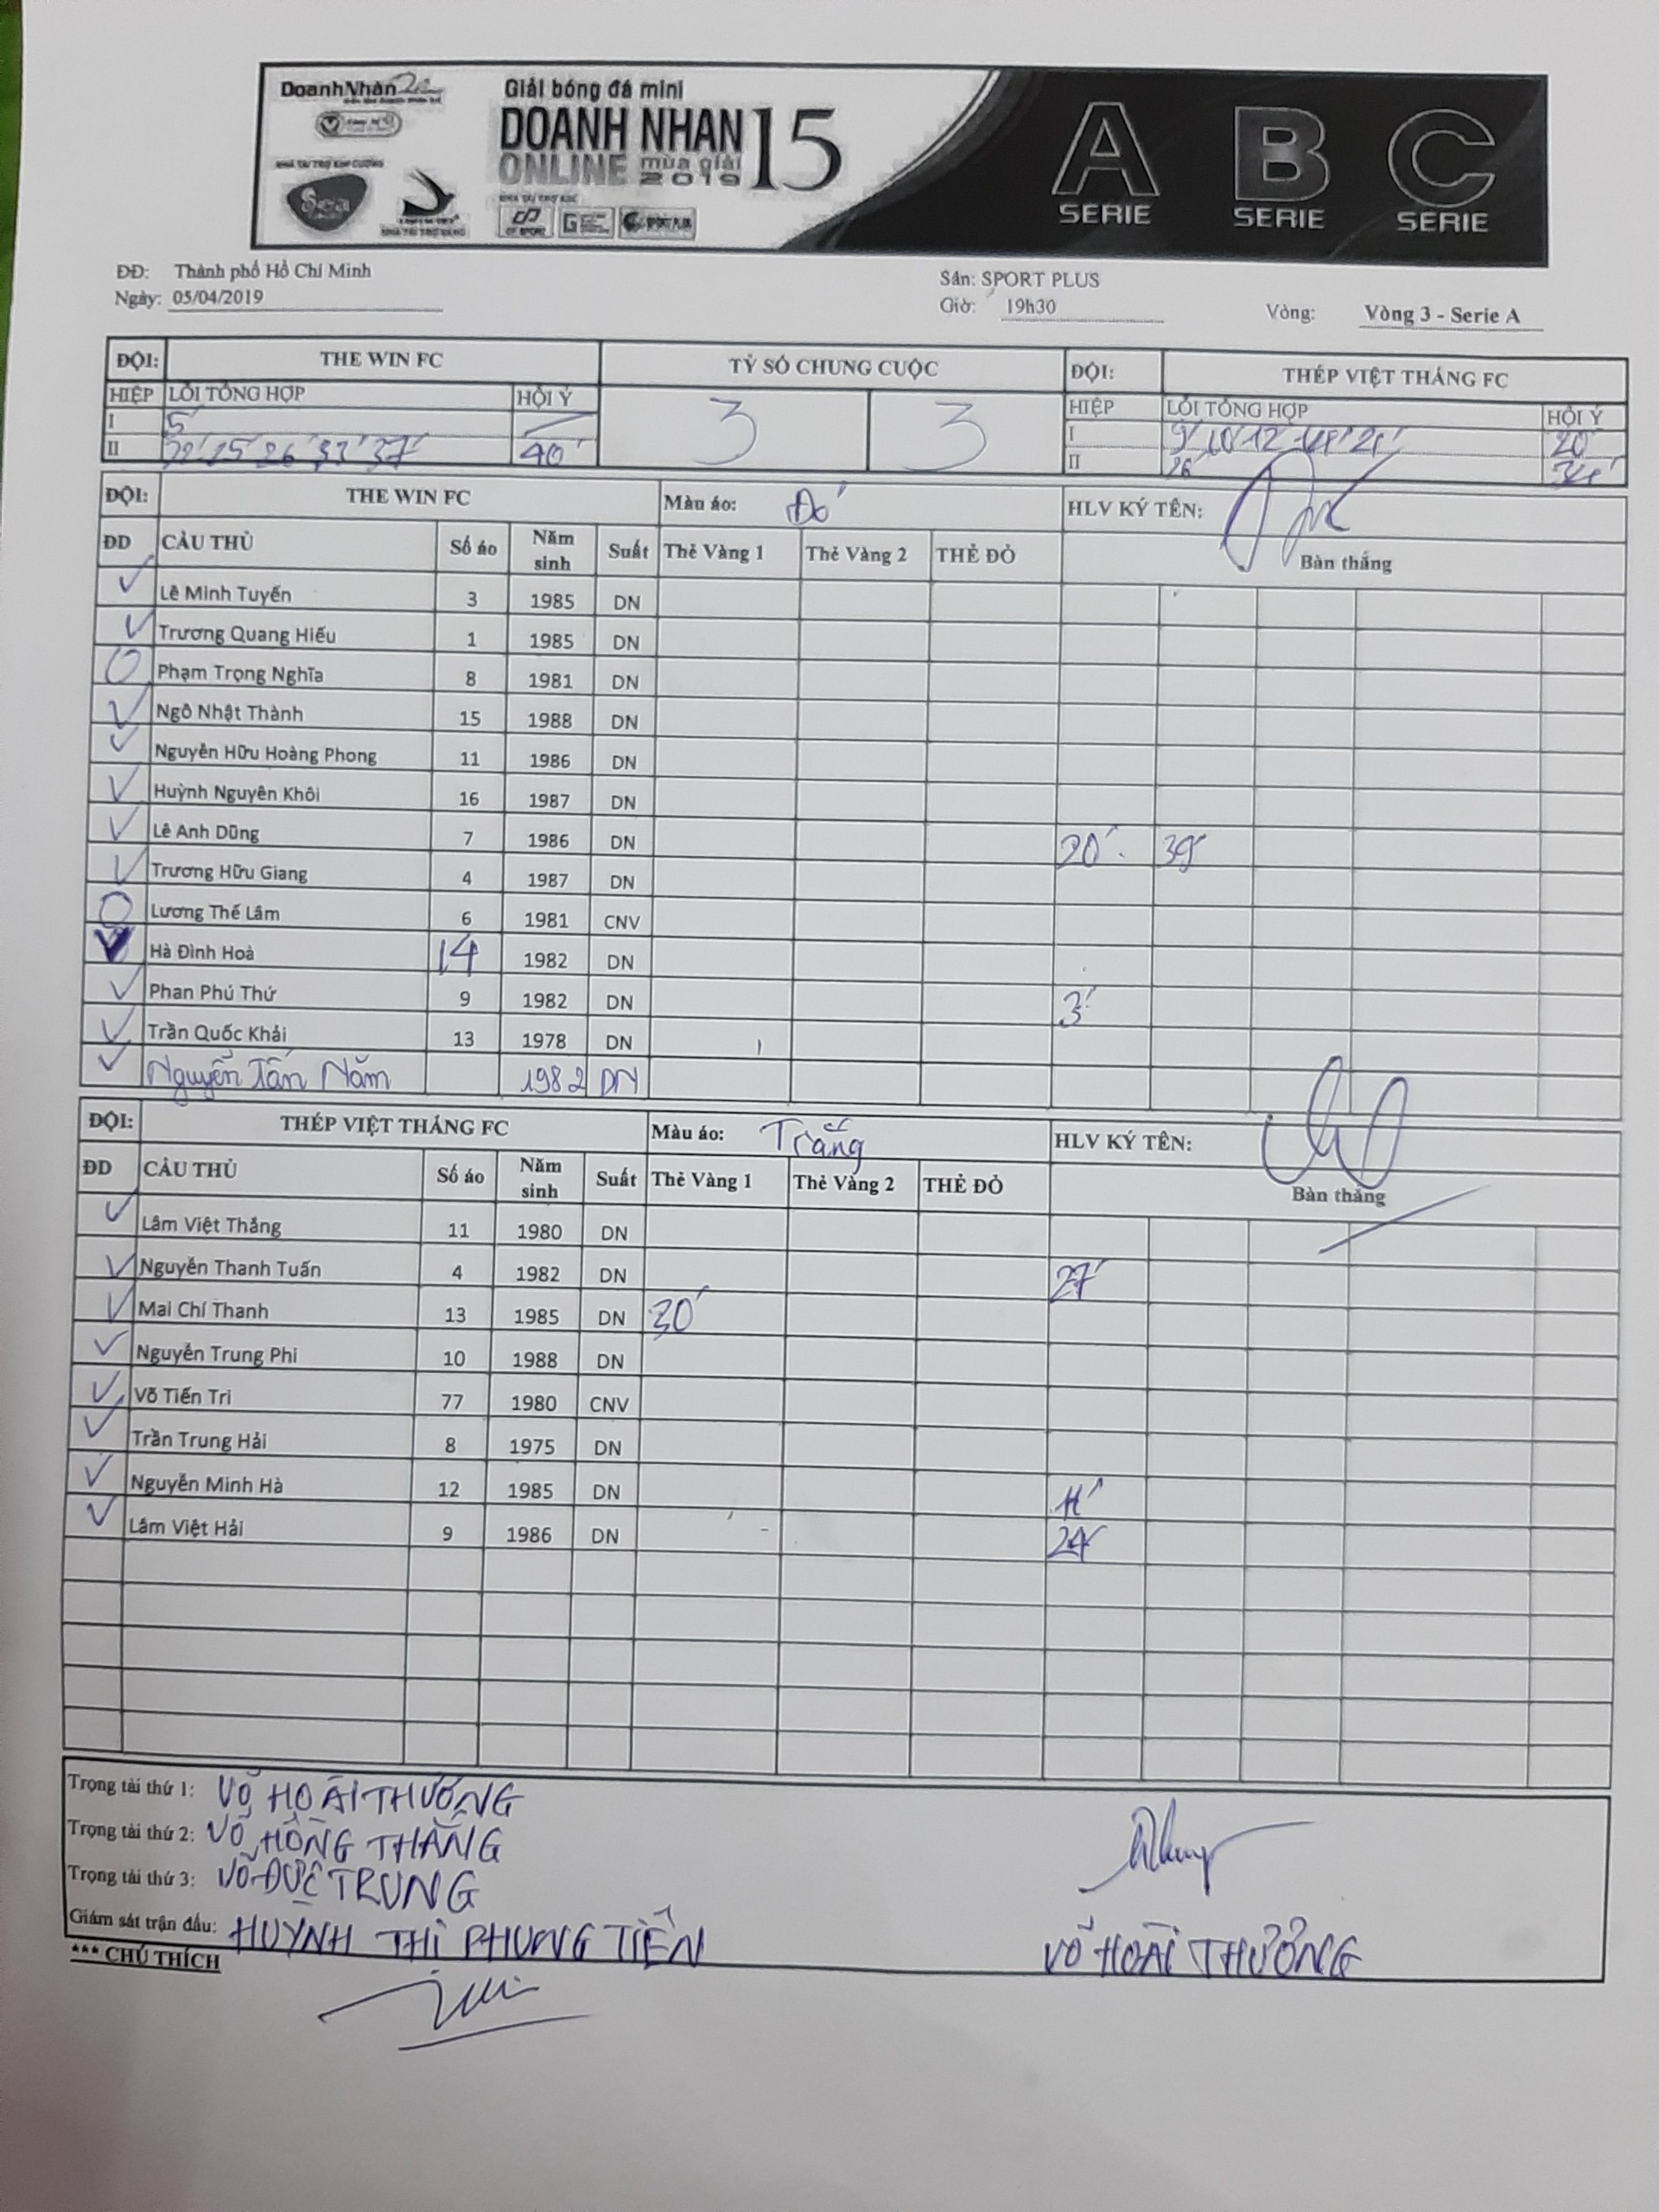 DoanhNhân
Giải bóng đá mini
DOANH NHAN 15
ONLINE mùa giải 2019
NHÀ TÀI TRỢ KIM CƯƠNG
Sea
NHÀ TÀI TRỢ VÀNG
SPORT PLUS
A SERIE B SERIE C SERIE
ĐĐ: Thành phố Hồ Chí Minh Sân: SPORT PLUS
Ngày: 05/04/2019 Giờ: 19h30 Vòng: Vòng 3 - Serie A
ĐỘI: THE WIN FC TỶ SỐ CHUNG CUỘC ĐỘI: THÉP VIỆT THẮNG FC
HIỆP LỖI TỔNG HỢP HỘI Ý 3 3 HIỆP LỖI TỔNG HỢP HỘI Ý
I 5' I 9' 10' 12 21' 20'
II 25' 26' 37' 40' II 26'
ĐỘI: THE WIN FC Màu áo: Đỏ HLV KÝ TÊN:
ĐD CẦU THỦ Số áo Năm sinh Suất Thẻ Vàng 1 Thẻ Vàng 2 THẺ ĐỎ Bàn thắng
Lê Minh Tuyến 3 1985 DN
Trương Quang Hiếu 1 1985 DN
Phạm Trọng Nghĩa 8 1981 DN
Ngô Nhật Thành 15 1988 DN
Nguyễn Hữu Hoàng Phong 11 1986 DN
Huỳnh Nguyên Khôi 16 1987 DN
Lê Anh Dũng 7 1986 DN 20' 39'
Trương Hữu Giang 4 1987 DN
Lương Thế Lâm 6 1981 CNV
Hà Đình Hoà 14 1982 DN
Phan Phú Thứ 9 1982 DN 3'
Trần Quốc Khải 13 1978 DN
Nguyễn Tấn Năm 1982 DN
ĐỘI: THÉP VIỆT THẮNG FC Màu áo: Trắng HLV KÝ TÊN:
ĐD CẦU THỦ Số áo Năm sinh Suất Thẻ Vàng 1 Thẻ Vàng 2 THẺ ĐỎ Bàn thắng
Lâm Việt Thắng 11 1980 DN
Nguyễn Thanh Tuấn 4 1982 DN 27'
Mai Chí Thanh 13 1985 DN 30'
Nguyễn Trung Phi 10 1988 DN
Võ Tiến Tri 77 1980 CNV
Trần Trung Hải 8 1975 DN
Nguyễn Minh Hà 12 1985 DN 11'
Lâm Việt Hải 9 1986 DN 24'
Trọng tài thứ 1: VÕ HOÀI THƯƠNG
Trọng tài thứ 2: VÕ HỒNG THẮNG
Trọng tài thứ 3: VÕ ĐỨC TRUNG
Giám sát trận đấu: HUỲNH THỊ PHƯƠNG TIỀN VÕ HOÀI THƯỞNG
*** CHÚ THÍCH